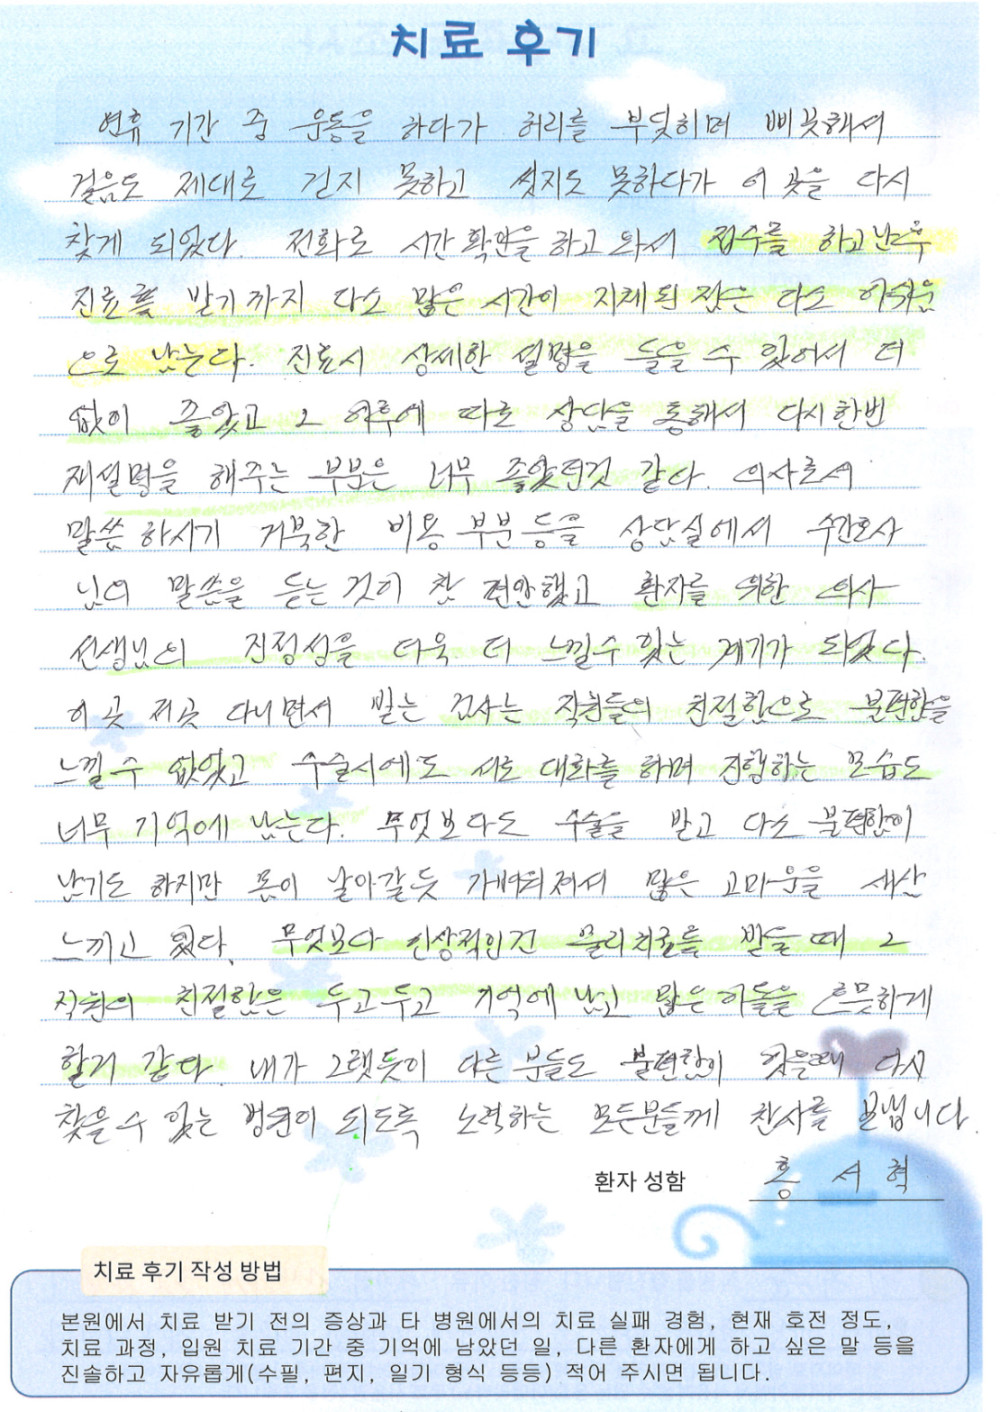 치료 후기
연휴 기간 중 운동을 하다가 허리를 부딪히며 삐끗해서
걸음도 제대로 걷지 못하고 씻지도 못하다가 이 곳을 다시
찾게 되었다. 전화로 시간 확인을 하고 와서 접수를 하고 난후
진료를 받기까지 다소 많은 시간이 지체된 점은 다소 아쉬움
으로 남는다. 진료시 상세한 설명을 들을 수 있어서 더
없이 좋았고 그 이후에 따로 상담을 통해서 다시한번
재설명을 해주는 부분은 너무 좋았던것 같다. 의사로서
말씀 하시기 거북한 비용 부분 등을 상담실에서 수간호사
님의 말씀을 듣는 것이 참 편안했고 환자를 위한 의사
선생님의 진정성을 더욱 더 느낄수 있는 계기가 되었다.
이 곳 저곳 다니면서 받는 검사는 직원들의 친절함으로 불편함을
느낄 수 없었고 수술시에도 서로 대화를 하며 진행하는 모습도
너무 기억에 남는다. 무엇보다도 수술을 받고 다소 불편함이
남기도 하지만 몸이 날아갈듯 가벼워져서 많은 고마움을 새삼
느끼고 있다. 무엇보다 인상적인건 물리치료를 받을 때 그
직원의 친절함은 두고두고 기억에 남고 많은 이들을 흐믓하게
할거 같다. 내가 그랬듯이 다른 분들도 불편함이 있을때 다시
찾을 수 있는 병원이 되도록 노력하는 모든분들께 찬사를 보냅니다.
환자 성함 홍 서 혁
치료 후기 작성 방법
본원에서 치료 받기 전의 증상과 타 병원에서의 치료 실패 경험, 현재 호전 정도,
치료 과정, 입원 치료 기간 중 기억에 남았던 일, 다른 환자에게 하고 싶은 말 등을
진솔하고 자유롭게(수필, 편지, 일기 형식 등등) 적어 주시면 됩니다.